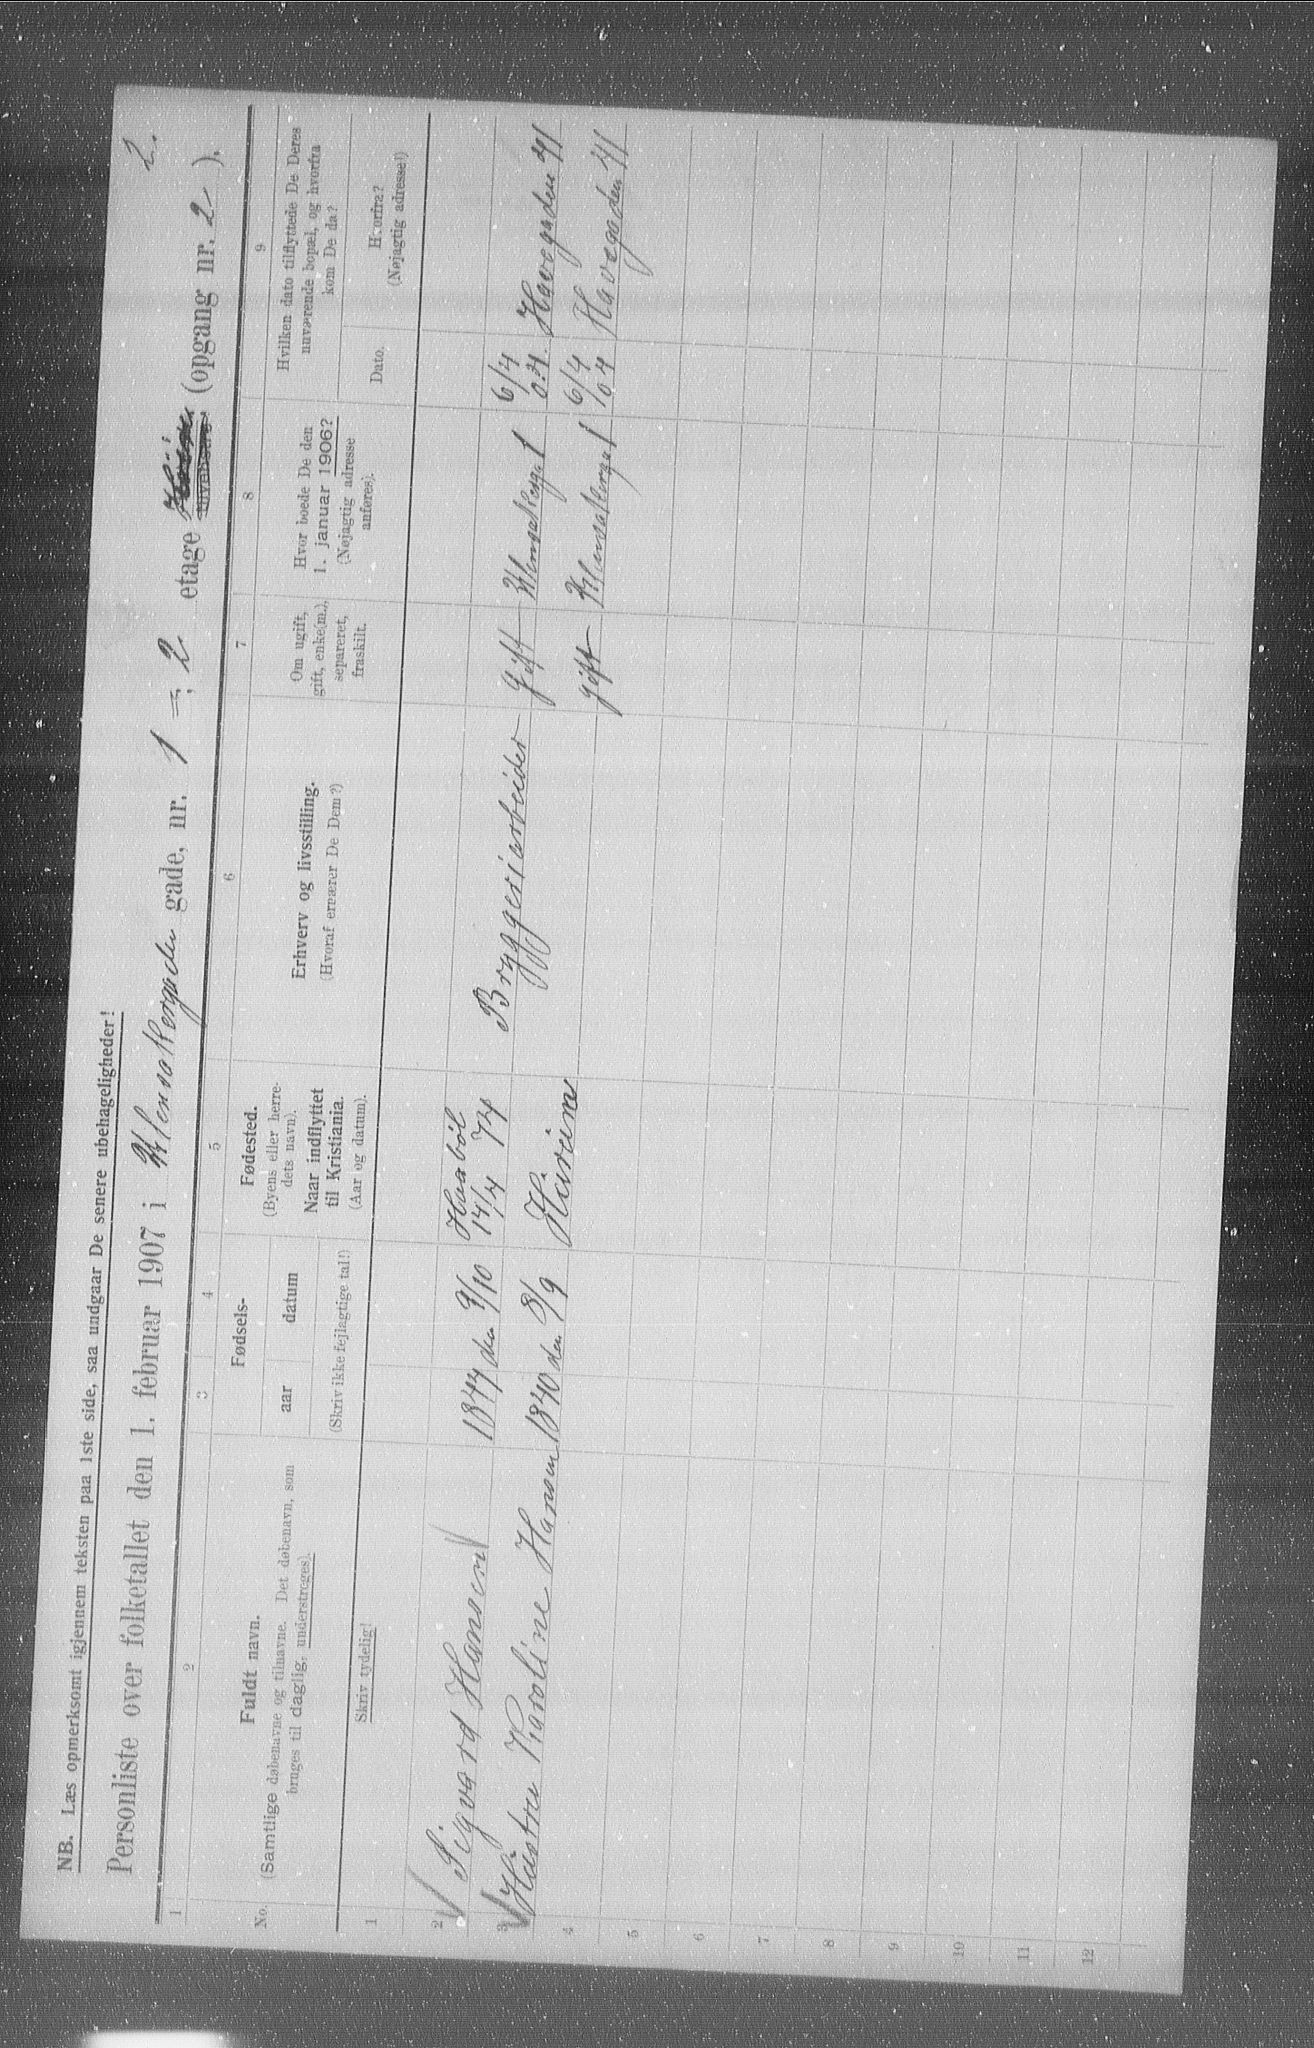 2.
NB. Læs opmerksomt igjennem teksten paa 1ste side, saa undgaar De senere ubehageligheder!
Personliste over folketallet den 1. februar 1907 i gade, nr. 1 - 2 etage (opgang nr. 2 ).
1 2 3 4 5 6 7 8 9
No.
Fuldt navn.
(Samtlige døbenavne og tilnavne. Det døbenavn, som
bruges til daglig, understreges).
Skriv tydelig!
Fødsels-
aar datum
(Skriv ikke feilagtige tal!)
Fødested.
(Byens eller herre-
dets navn).
Naar indflyttet
til Kristiania.
(Aar og datum).
Erhverv og livsstilling.
(Hvoraf ernærer De Dem?)
Om ugift,
gift, enke(m.),
separeret,
fraskilt.
Hvor boede De den
1. januar 1906?
(Nøjagtig adresse
anføres).
Hvilken dato tilflyttede De Deres
nuværende bopæl, og hvorfra
kom De da?
Dato.
Hvorfra?
(Nøjagtig adresse!)
1
2 Sigvard Hansen 1847 den 9/10 Haabøl 14/4 74 Bryggeriarbeider Gift 6/4 04. Havegaden 41
3 Hustru Karoline Hansen 1840 den 8/9 gift 6/4 04 Havegaden 41
4
5
6
7
8
9
10
11
12